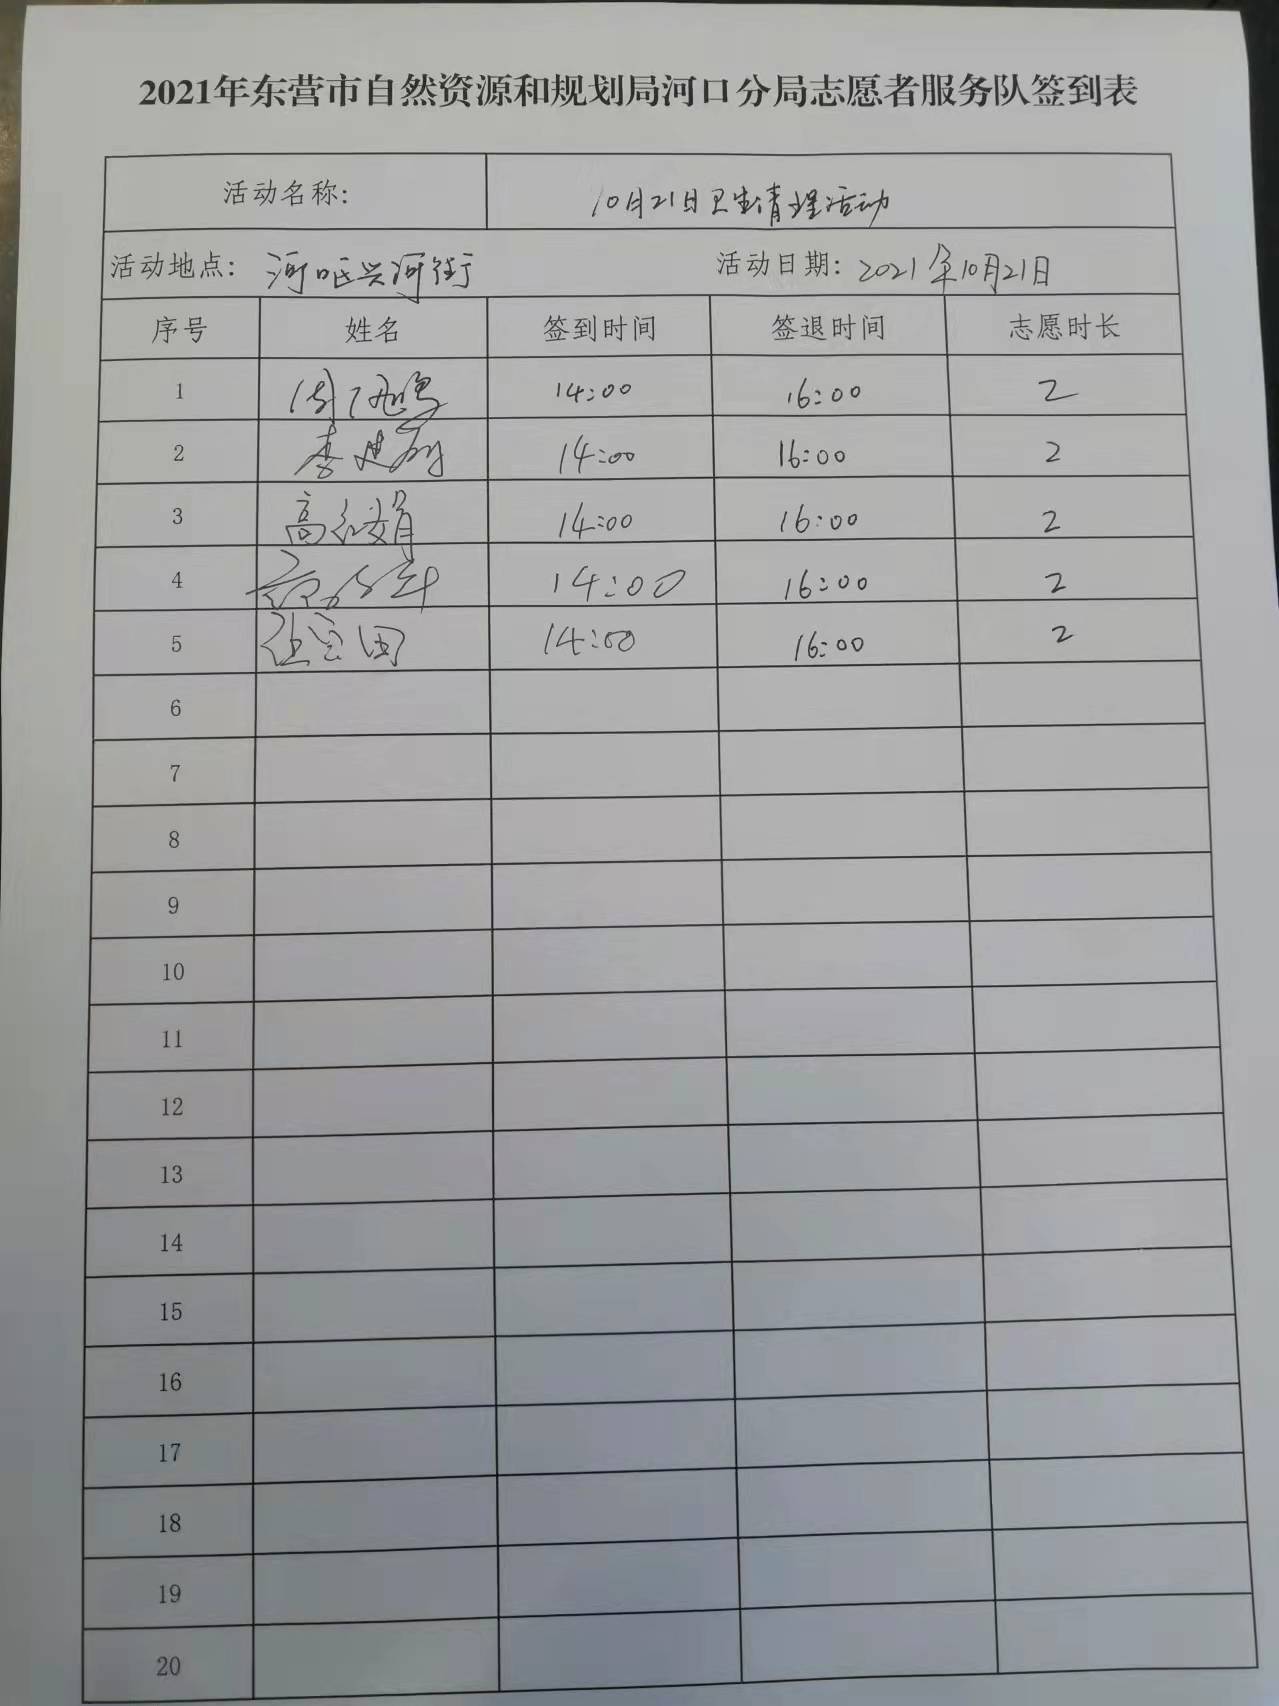 2021年东营市自然资源和规划局河口分局志愿者服务队签到表
活动名称: 10月21日卫生清理活动
活动地点: 河口区兴河街 活动日期: 2021年10月21日
序号 姓名 签到时间 签退时间 志愿时长
1 14:00 16:00 2
2 李建 14:00 16:00 2
3 高红娟 14:00 16:00 2
4 14:00 16:00 2
5 14:00 16:00 2
6
7
8
9
10
11
12
13
14
15
16
17
18
19
20